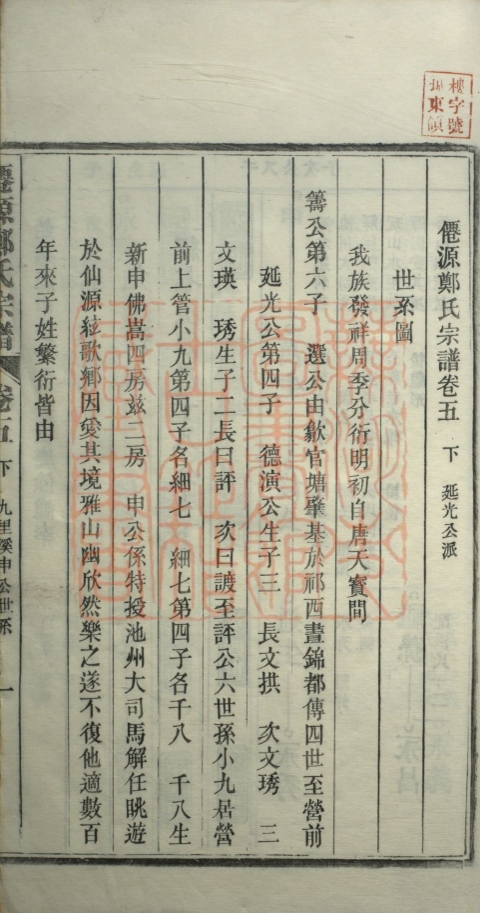 僊源鄭氏宗譜卷五　下　延光公派
世系圖
我族發祥周季分衍明初自唐天寳間
籌公第六子　選公由歙官塘肇基於祁西晝錦都傳四世至營前
延光公第四子　德演公生子三　長文拱　次文琇　三
文瑛　琇生子二長曰評　次曰謢至評公六世孫小九居營
前上管小九第四子名細七　細七第四子名千八　千八生
新申佛嵩四房兹二房　申公係特授池州大司馬解任眺遊
於仙源絃歌鄉因愛其境雅山幽欣然樂之遂不復他適數百
年來子姓繁衍皆由
僊源鄭氏宗譜　卷五　下　九里溪申公世系　一
樓字號
東順